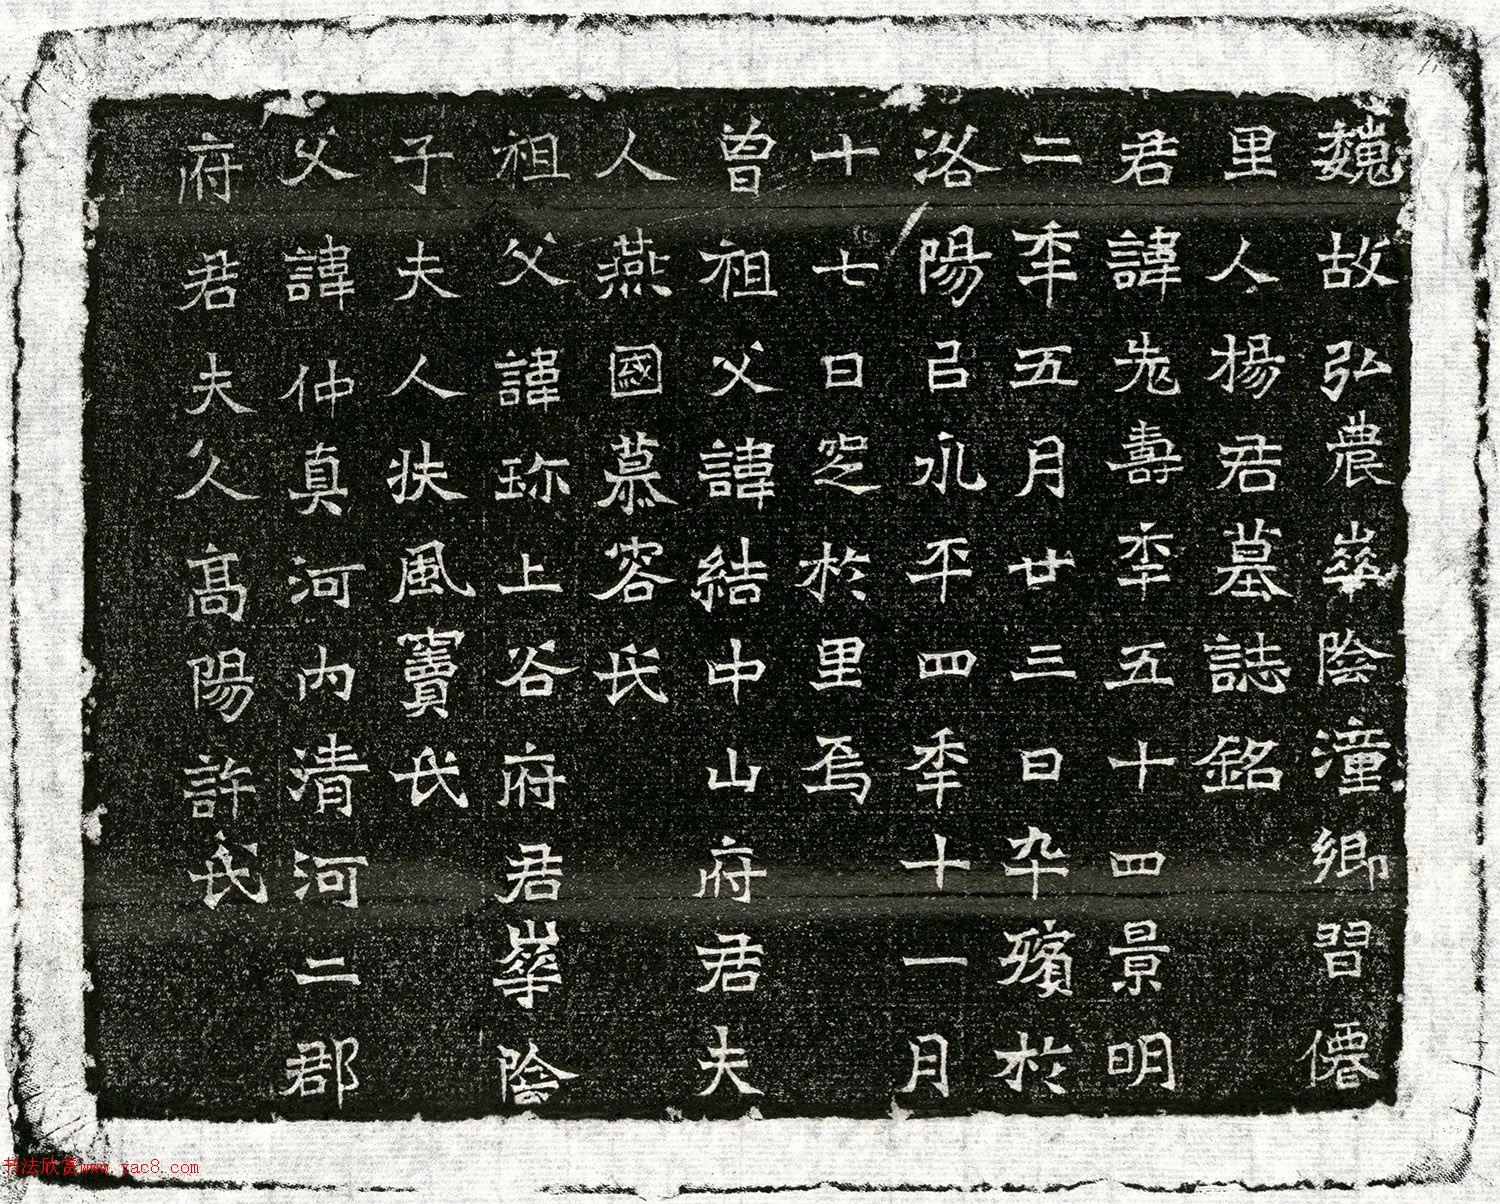 魏故弘農華陰潼鄉習僊
里人楊君墓誌銘
君諱老壽季五十四景明
二秊五月廿三日卒殯於
洛陽呂永平四秊十一月
十七日窆於里焉
曾祖父諱結中山府君夫
人燕國慕容氏
祖父諱珍上谷府君華陰
子夫人扶風竇氏
父諱仲真河内清河二郡
府君夫人高陽許氏
书法欣赏www.yac8.com